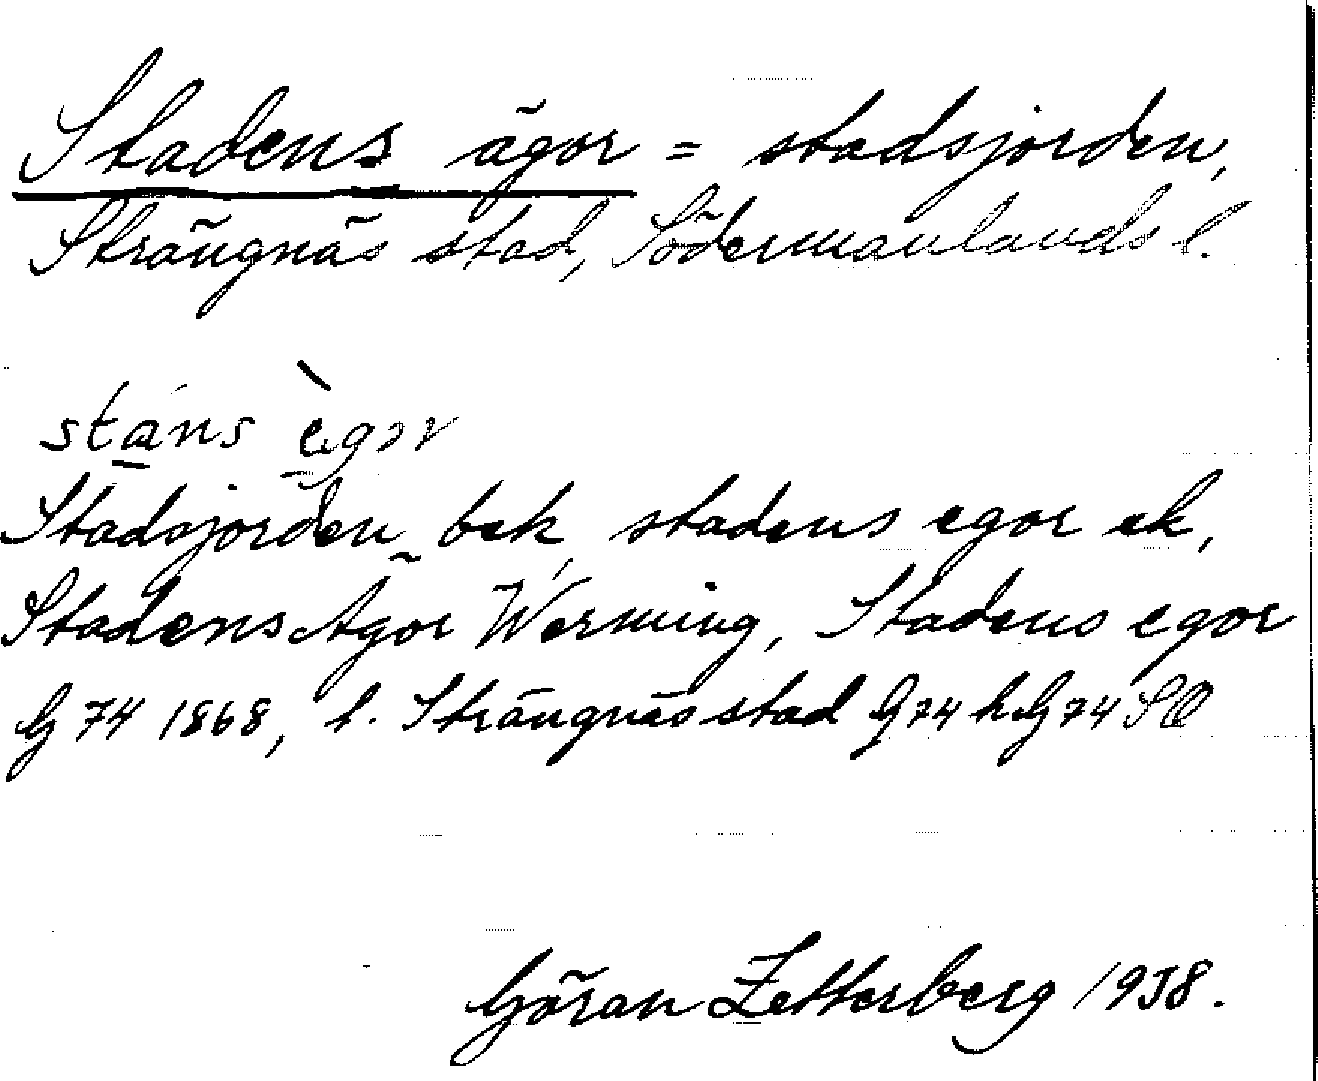 Stadens ägor = stadsjorden,
Strängnäs stad, Södermanlands l.
stans ègor
Stadsjorden bek, stadens egor ek,
Stadens Ägor Werming, Stadens egor
G 74 1868, t. Strängnäs stad G 74 h. G 74 SO
Göran Zetterberg 1938.